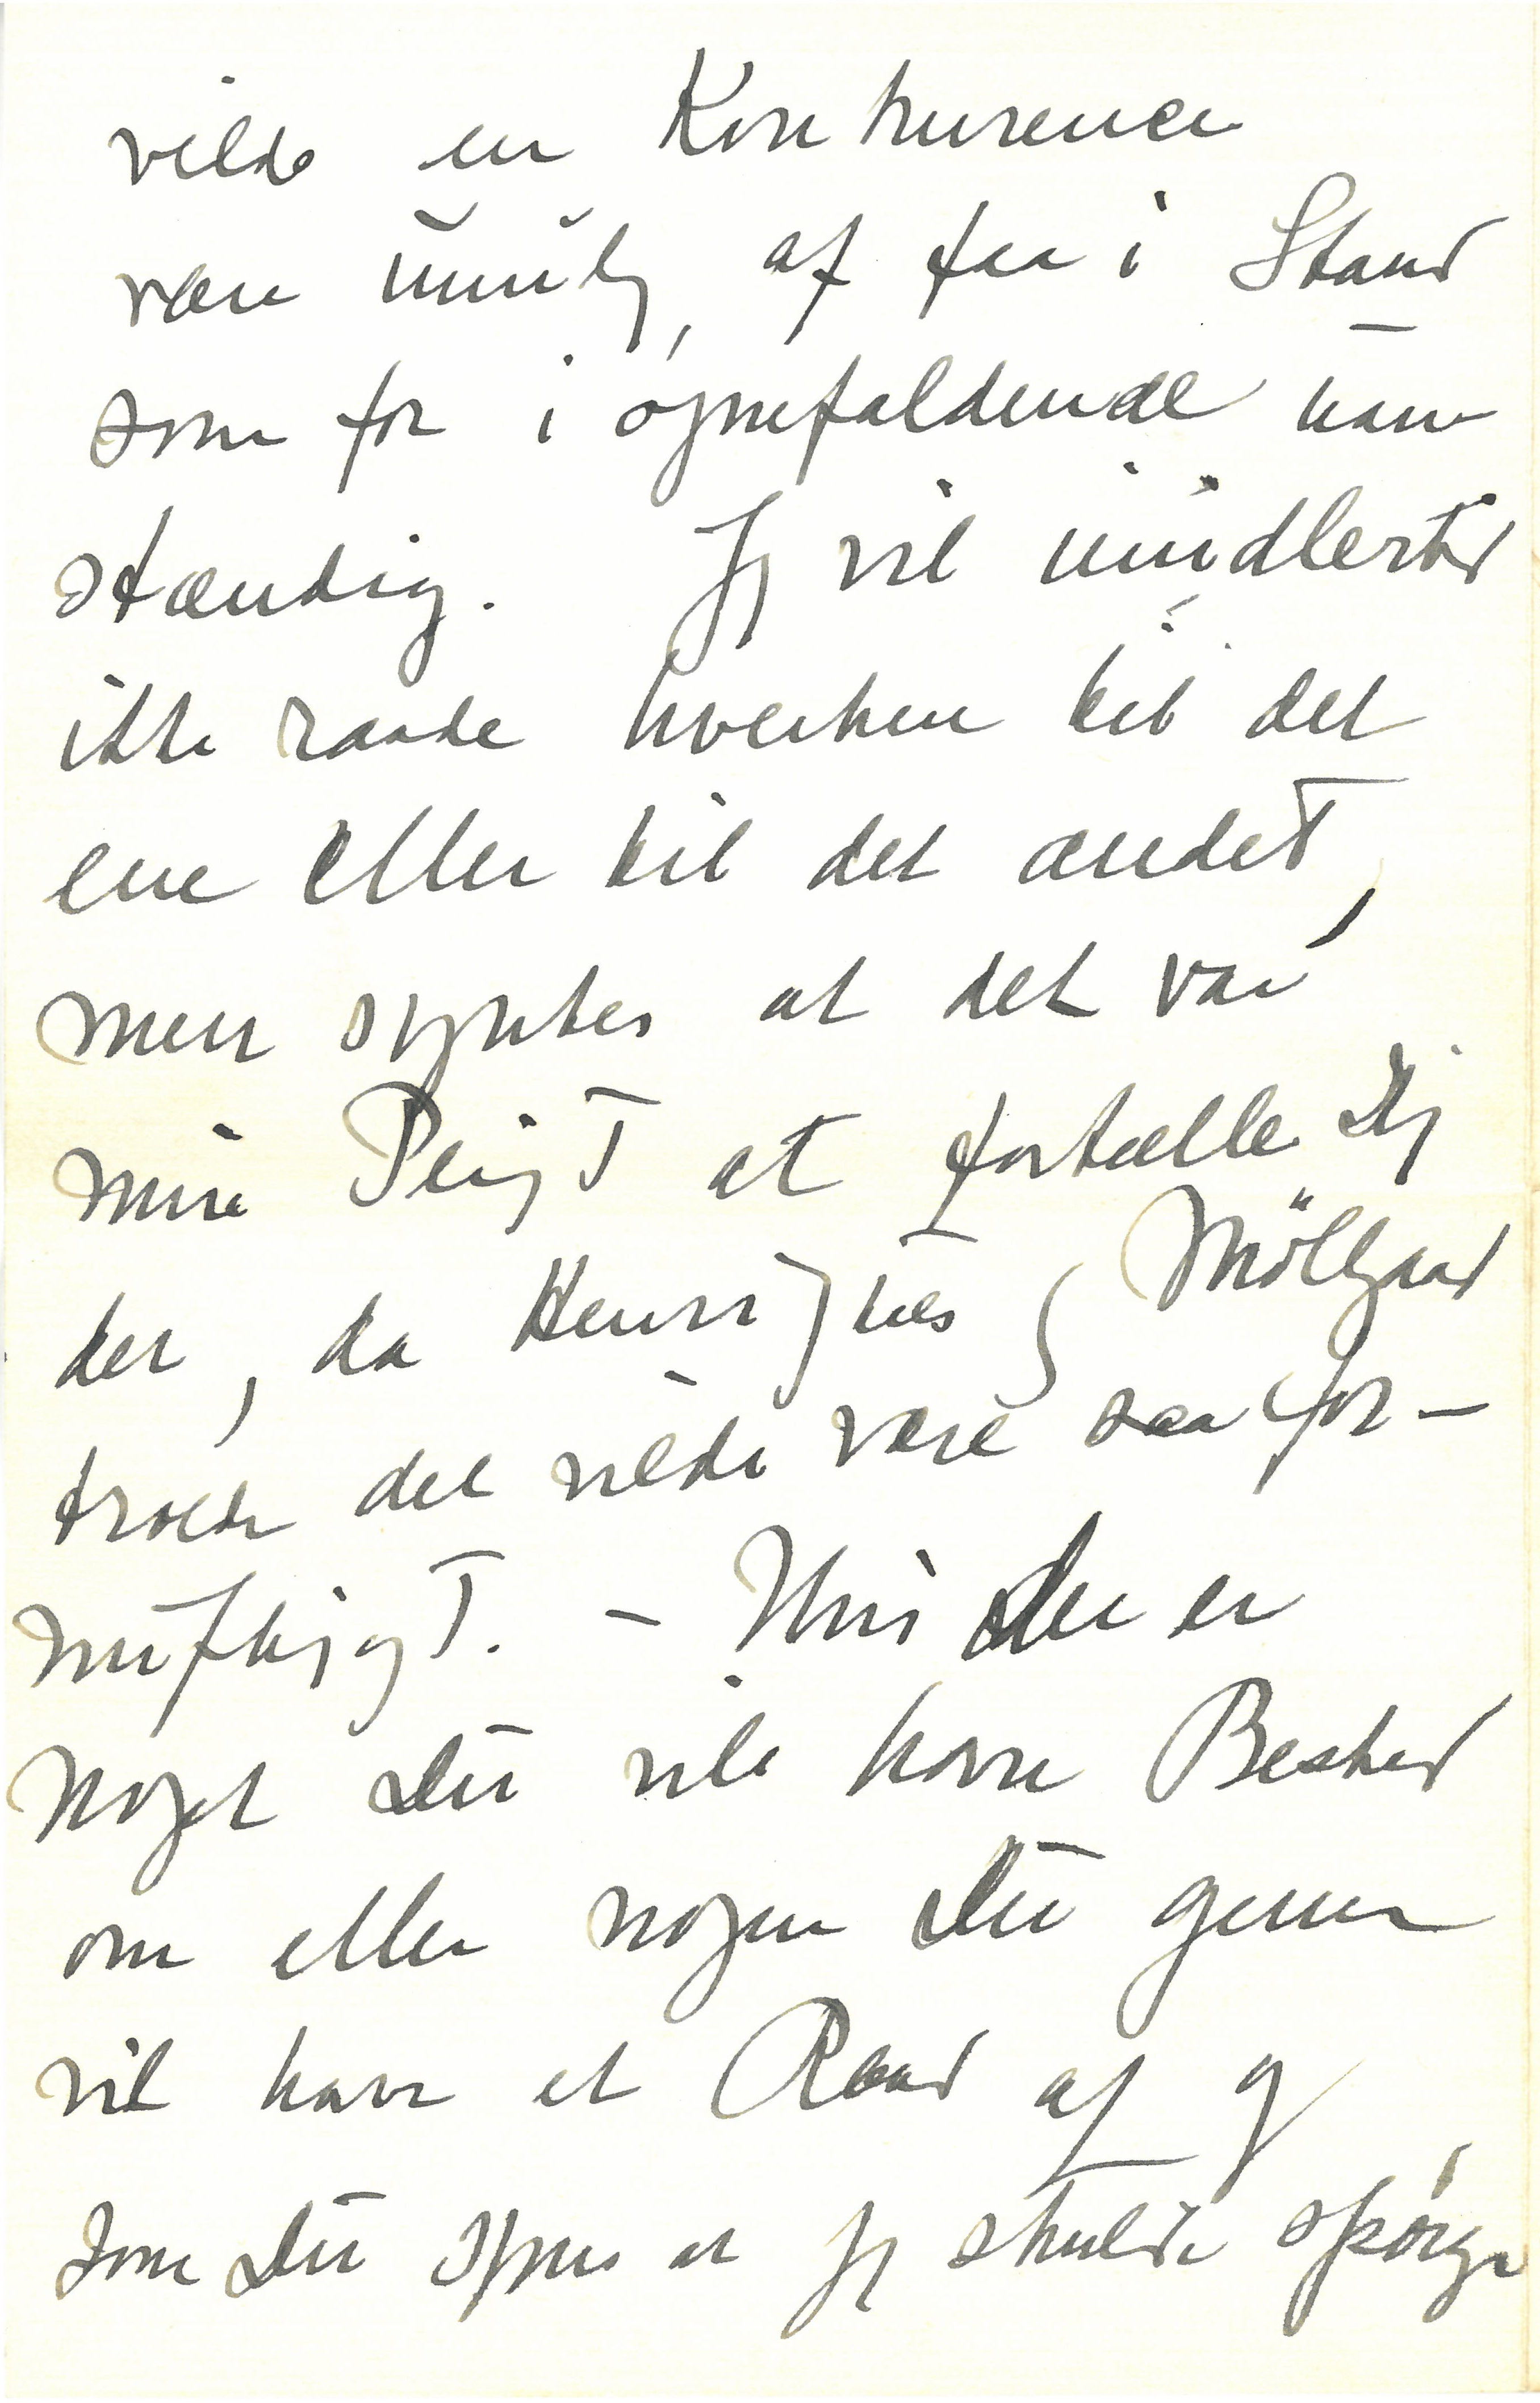 vilde en Konkurence
være umulig, at faa i Stand
som for i øjnefaldende uan
stændig. Jeg vil imidlertid
ikke raade hverken til det
ene eller til det andet,
men syntes at det var
min Pligt at fortælle Dig
det, da Henriques Möllgaard
troede det vilde være saa for-
nuftigt. - Hvis der er
noget Du vil have Besked
om eller nogen Du gerne
vil have et Raad af og
som Du synes at jeg skulde spørge